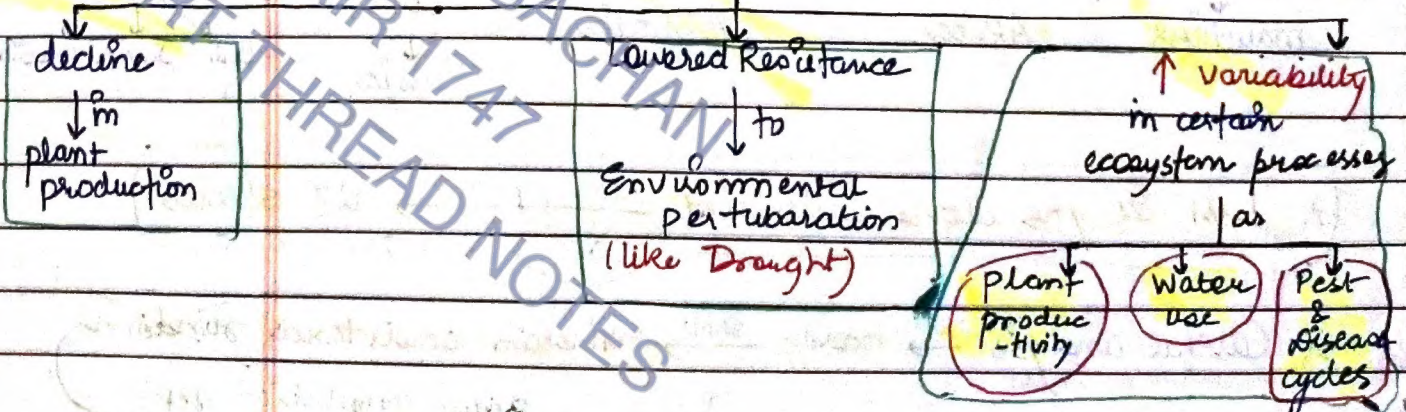 decline
↓ in
plant
production
Lowered Resistance
↓ to
Environmental
pertubaration
(like Drought)
↑ variability
in certain
ecosystem processes
as
Plant
produc
-tivity
Water
use
Pest
&
Disease
cycles
AIR 1747
SACHAN
ART THREAD NOTES